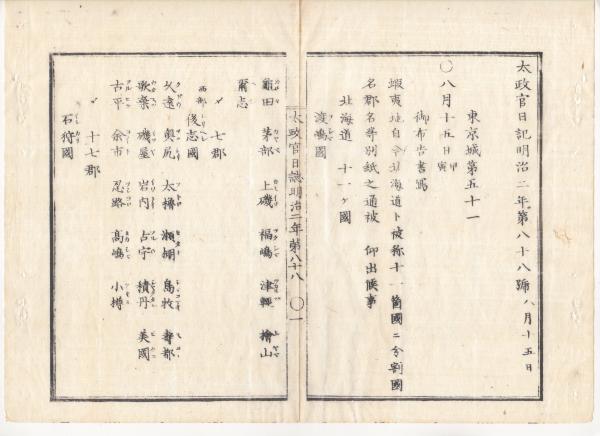 太政官日記明治二年第八十八號 八月十五日
東京城第五十一
〇八月十五日甲寅
御布告書寫
蝦夷地自今北海道ト被稱十一箇國ニ分割國
名郡名等別紙之通被 仰出候事
北海道 十一ヶ國
渡嶋國
太政官日誌明治二年第八十八 〇一
龜田 茅部 上磯 福嶋 津輕 檜山
爾志
〆 七郡
西部 後志國
久遠 奧尻 太櫓 瀬棚 島牧 壽都
歌棄 磯屋 岩内 古宇 積丹 美國
古平 余市 忍路 高嶋 小樽
〆 十七郡
石狩國